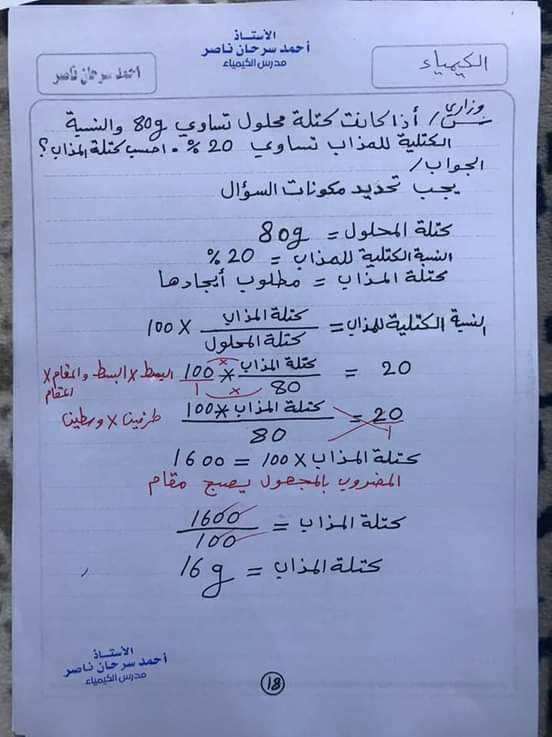 الأستاذ
أحمد سرحان ناصر
مدرس الكيمياء
الكيمياء
احمد سرحان ناصر
وزاري
س/ أذا كانت كتلة محلول تساوي 80g والنسبة
الكتلية للمذاب تساوي 20 % . احسب كتلة المذاب ؟
الجواب /
يجب تحديد مكونات السؤال
كتلة المحلول = 80g
النسبة الكتلية للمذاب = 20 %
كتلة المذاب = مطلوب أيجادها
النسبة الكتلية للمذاب = كتلة المذاب / كتلة المحلول × 100
20 = كتلة المذاب / 80 × 100 / 1 البسط × البسط والمقام × المقام
20 / 1 = كتلة المذاب × 100 / 80 طرفين × وسطين
كتلة المذاب × 100 = 1600
المضروب بالمجهول يصبح مقام
كتلة المذاب = 1600 / 100
كتلة المذاب = 16g
الأستاذ
أحمد سرحان ناصر
مدرس الكيمياء
18